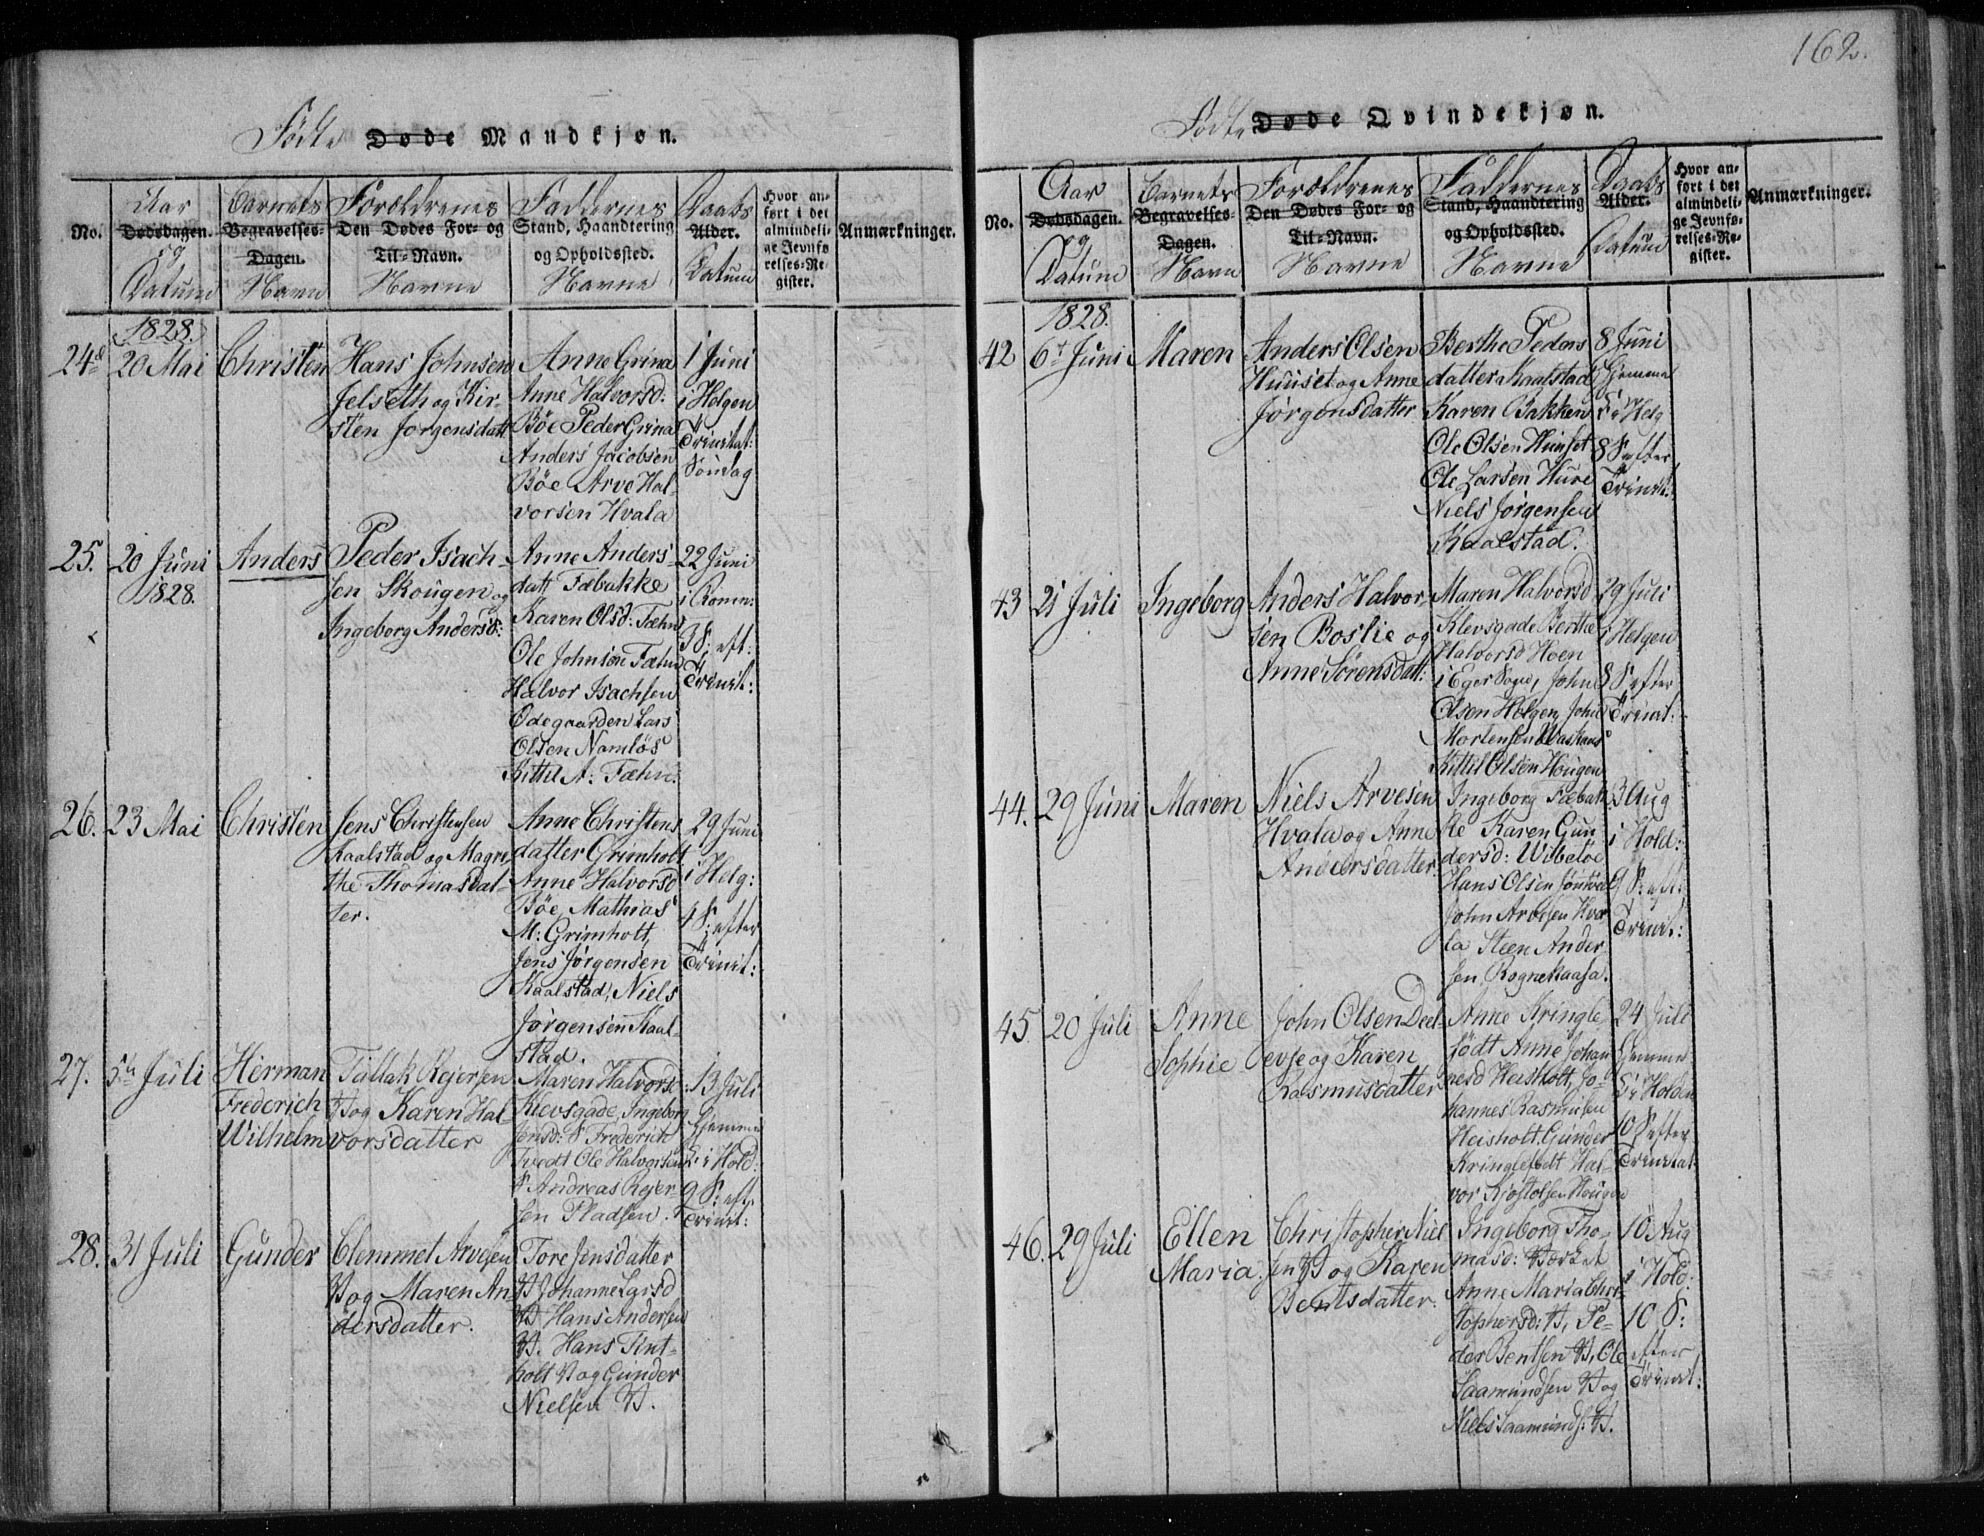 162.
Födte Døde Mandkjøn.
No.
Aar
Dødsdagen.
og
Datum
Barnets
Begravelses-
Dagen.
Navn
Forældrenes
Den Dødes For- og
Til-Navn.
Navne
Faddernes
Stand, Haandtering
og Opholdssted.
Navne
Daabs
Alder.
Datum
Hvor an-
ført i det
almindeli-
ge Jevnfø
relses-Re-
gister.
Anmærkninger.
1828.
24de
20 Mai
Christen
Hans Johnsen
Jelseth og Kir-
sten Jorgensdatt
Anne Grina
Anne Halvorsd:
Böe Peder Grina
Anders Jacobsen
Böe Arve Hal-
vorsen Hvala
1 Juni
i Helgen
Trinitat:
Söndag
25.
20 Juni
1828.
Anders
Peder Isach-
sen Skougen og
Ingeborg Andersd:
Anne Anders-
datt Fæbakke
Karen Olsd: Fæhn
Ole Johnsen Fæhn
Halvor Isachsen
Ödegaarden Lars
Olsen Namlös
Kittil A: Fæhn:
22 Juni
i Romn:
3 S: eft:
Trinit:
26.
23 Mai
Christen
Jens Christensen
Kaalstad og Magre-
the Thomasdat-
ter.
Anne Christens
datter Grimholt
Anne Halvorsd
Böe, Mathias
M: Grimholt,
Jens Jörgensen
Kaalstad, Niels
Jörgensen Kaal-
stad.
29 Juni
i Helg:
4 S: efter
Trinit:
27.
5te Juli
Herman
Frederich
Wilhelm
Tallak Rejersen
V og Karen Hal-
vorsdatter
Maren Halvors:
Klevsgade, Ingeborg
Jensd: Frederich
Tvedt Ole Halvorsen
Andreas Rejer-
sen Pladsen.
13 Juli
Hjemme
i Hold:
9 S: eft
Trinit:
28.
31 Juli
Gunder
Clemmet Arvesen
V og Maren An-
dersdatter.
Tore Jensdatter
V Johanne Larsd
V Hans Andersen
V. Hans Tint-
holt V og Gunder
Nielsen V.
Födte Døde Qvindekjøn.
No.
Aar
Dødsdagen.
og
Datum
Barnets
Begravelses-
Dagen.
Navn
Forældrenes
Den Dødes For- og
Til-Navn.
Navne
Faddernes
Stand, Haandtering
og Opholdssted.
Navne
Daabs
Alder.
Datum
Hvor an-
ført i det
almindeli-
ge Jevnfø-
relses-Re-
gister.
Anmærkninger.
1828.
42
6te Juni
Maren
Anders Olsen
Huuset og Anne
Jörgensdatter
Berthe Peders
datter Kaalstad
Karen Bakken
Ole Olsen Huuset
Ole Larsen Hure
Niels Jörgensen
Kaalstad.
8 Juni
Hjemme
i Helg
8 S efter
Trinit:
43
21 Juli
Ingeborg
Anders Halvor-
sen Boslie og
Anne Sörensdatt:
Maren Halvorsd
Klevsgade Berthe
Halvorsd Hoen
i Eger Sogn, John
Olsen Helgen, John
Mortensen
Kittil Olsen Hougen
29 Juli
i Helgen
8 S efter
Trinit:
44.
29 Juni
Maren
Niels Arvesen
Hvala og Anne
Andersdatter
Ingeborg Fæbak-
ke Karen Gun
dersd: Wibetöe
Hans Olsen
John Arvesen Hva-
la Steen Ander-
sen Rognekaasa.
3 Aug
i Hold:
9 S: eft:
Trinit:
45
20 Juli
Anne
Sophie
John Olsen Deel-
evje og Karen
Rasmusdatter
Anne Kringle-
födt Anne Johan
nesd Heisholt, Jo-
hannes Rasmusen
Heisholt, Gunder
Kringlefödt Hal-
vor Kjöstolsen Hougen
24 Juli
Hjemme
i Holden
10 S efter
Trinitat:
46.
29 Juli
Ellen
Maria.
Christopher Niel
sen V og Karen
Bentsdatter.
Ingeborg Tho-
masd: Værket
Anne Maria Chri-
stophersd: V, Pe-
der Bentsen V, Ole
Saamundsen V og
Niels Saamunds: V.
10 Aug
i Hold:
10 S:
efter
Trinit: